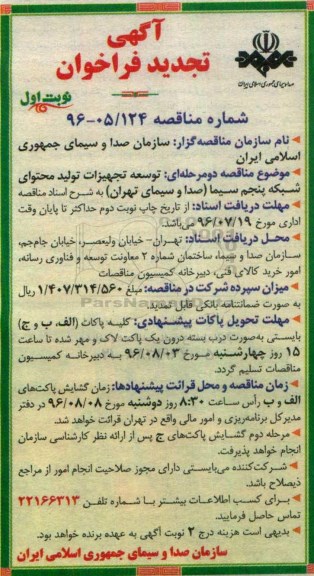 آگهی
تجدید فراخوان
صدا و سیمای جمهوری اسلامی ایران
نوبت اول
شماره مناقصه ۹۶-۰۵/۱۲۴
نام سازمان مناقصه‌گزار: سازمان صدا و سیمای جمهوری
اسلامی ایران
موضوع مناقصه دومرحله‌ای: توسعه تجهیزات تولید محتوای
شبکه پنجم سیما (صدا و سیمای تهران) به شرح اسناد مناقصه
مهلت دریافت اسناد: از تاریخ چاپ نوبت دوم حداکثر تا پایان وقت
اداری مورخ ۹۶/۰۷/۱۹ می‌باشد.
محل دریافت اسناد: تهران- خیابان ولیعصر، خیابان جام‌جم،
سازمان صدا و سیما، ساختمان شماره ۲ معاونت توسعه و فناوری رسانه،
امور خرید کالای فنی، دبیرخانه کمیسیون مناقصات
میزان سپرده شرکت در مناقصه: مبلغ ۱/۴۰۷/۳۱۴/۵۶۰ ریال
به صورت ضمانتنامه بانکی قابل تمدید
مهلت تحویل پاکات پیشنهادی: کلیه پاکات (الف، ب و ج)
بایستی به‌صورت درب بسته درون یک پاکت لاک و مهر شده تا ساعت
۱۵ روز چهارشنبه مورخ ۹۶/۰۸/۰۳ به دبیرخانه کمیسیون
مناقصات تسلیم گردد.
زمان مناقصه و محل قرائت پیشنهادها: زمان گشایش پاکت‌های
الف و ب رأس ساعت ۸:۳۰ روز دوشنبه مورخ ۹۶/۰۸/۰۸ در دفتر
مدیرکل برنامه‌ریزی و امور مالی واقع در تهران قرائت خواهد شد.
مرحله دوم گشایش پاکت‌های ج پس از ارائه نظر کارشناسی سازمان
انجام خواهد پذیرفت.
شرکت‌کننده می‌بایستی دارای مجوز صلاحیت انجام امور از مراجع
ذیصلاح باشد.
برای کسب اطلاعات بیشتر با شماره تلفن ۲۲۱۶۶۳۱۳
تماس حاصل فرمایید.
بدیهی است هزینه درج ۲ نوبت آگهی به عهده برنده خواهد بود.
سازمان صدا و سیمای جمهوری اسلامی ایران